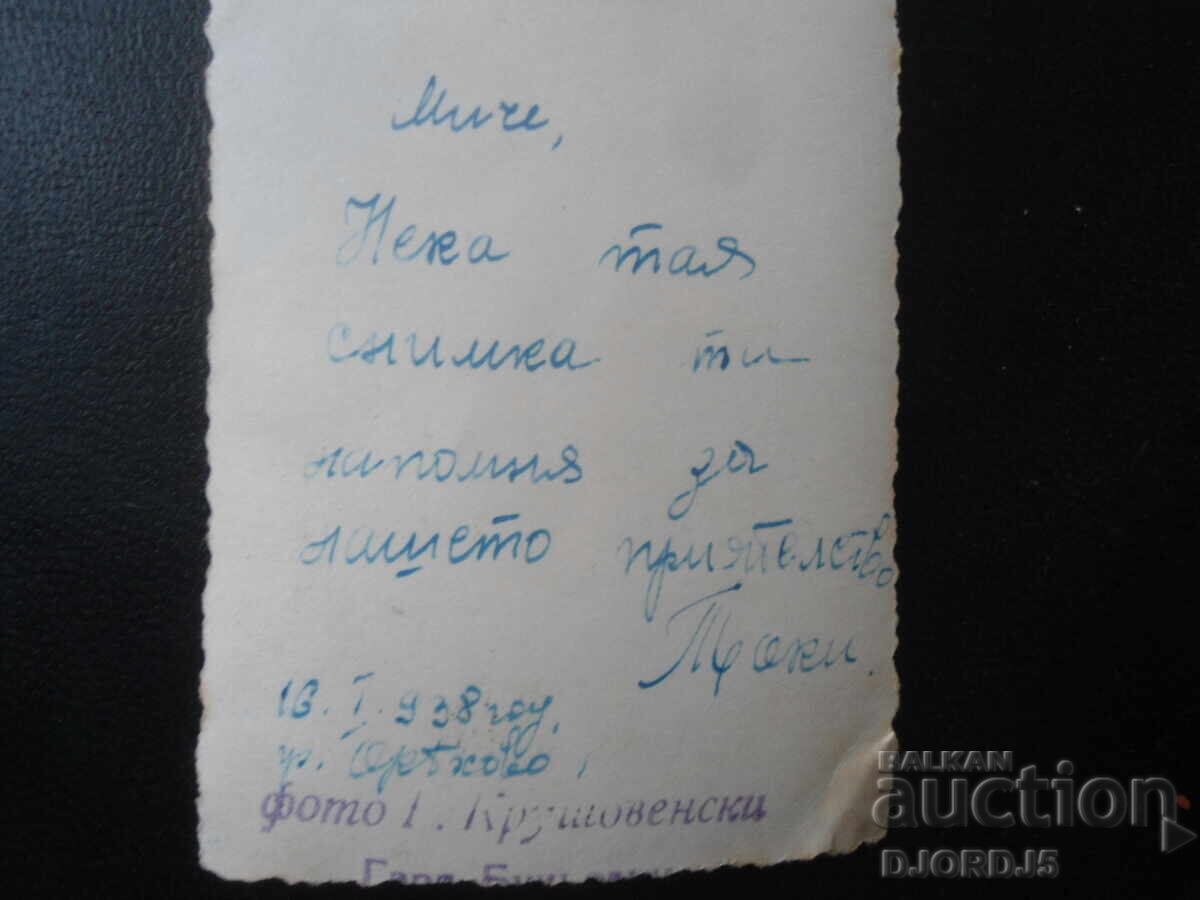 Миче,
Нека тая
снимка ти
напомня за
нашето приятелство
Цоки.
16. I. 938 год.
гр. Орѣхово,
фото Г. Крушовенски
Гара
BALKAN
auction
DJORDJ5